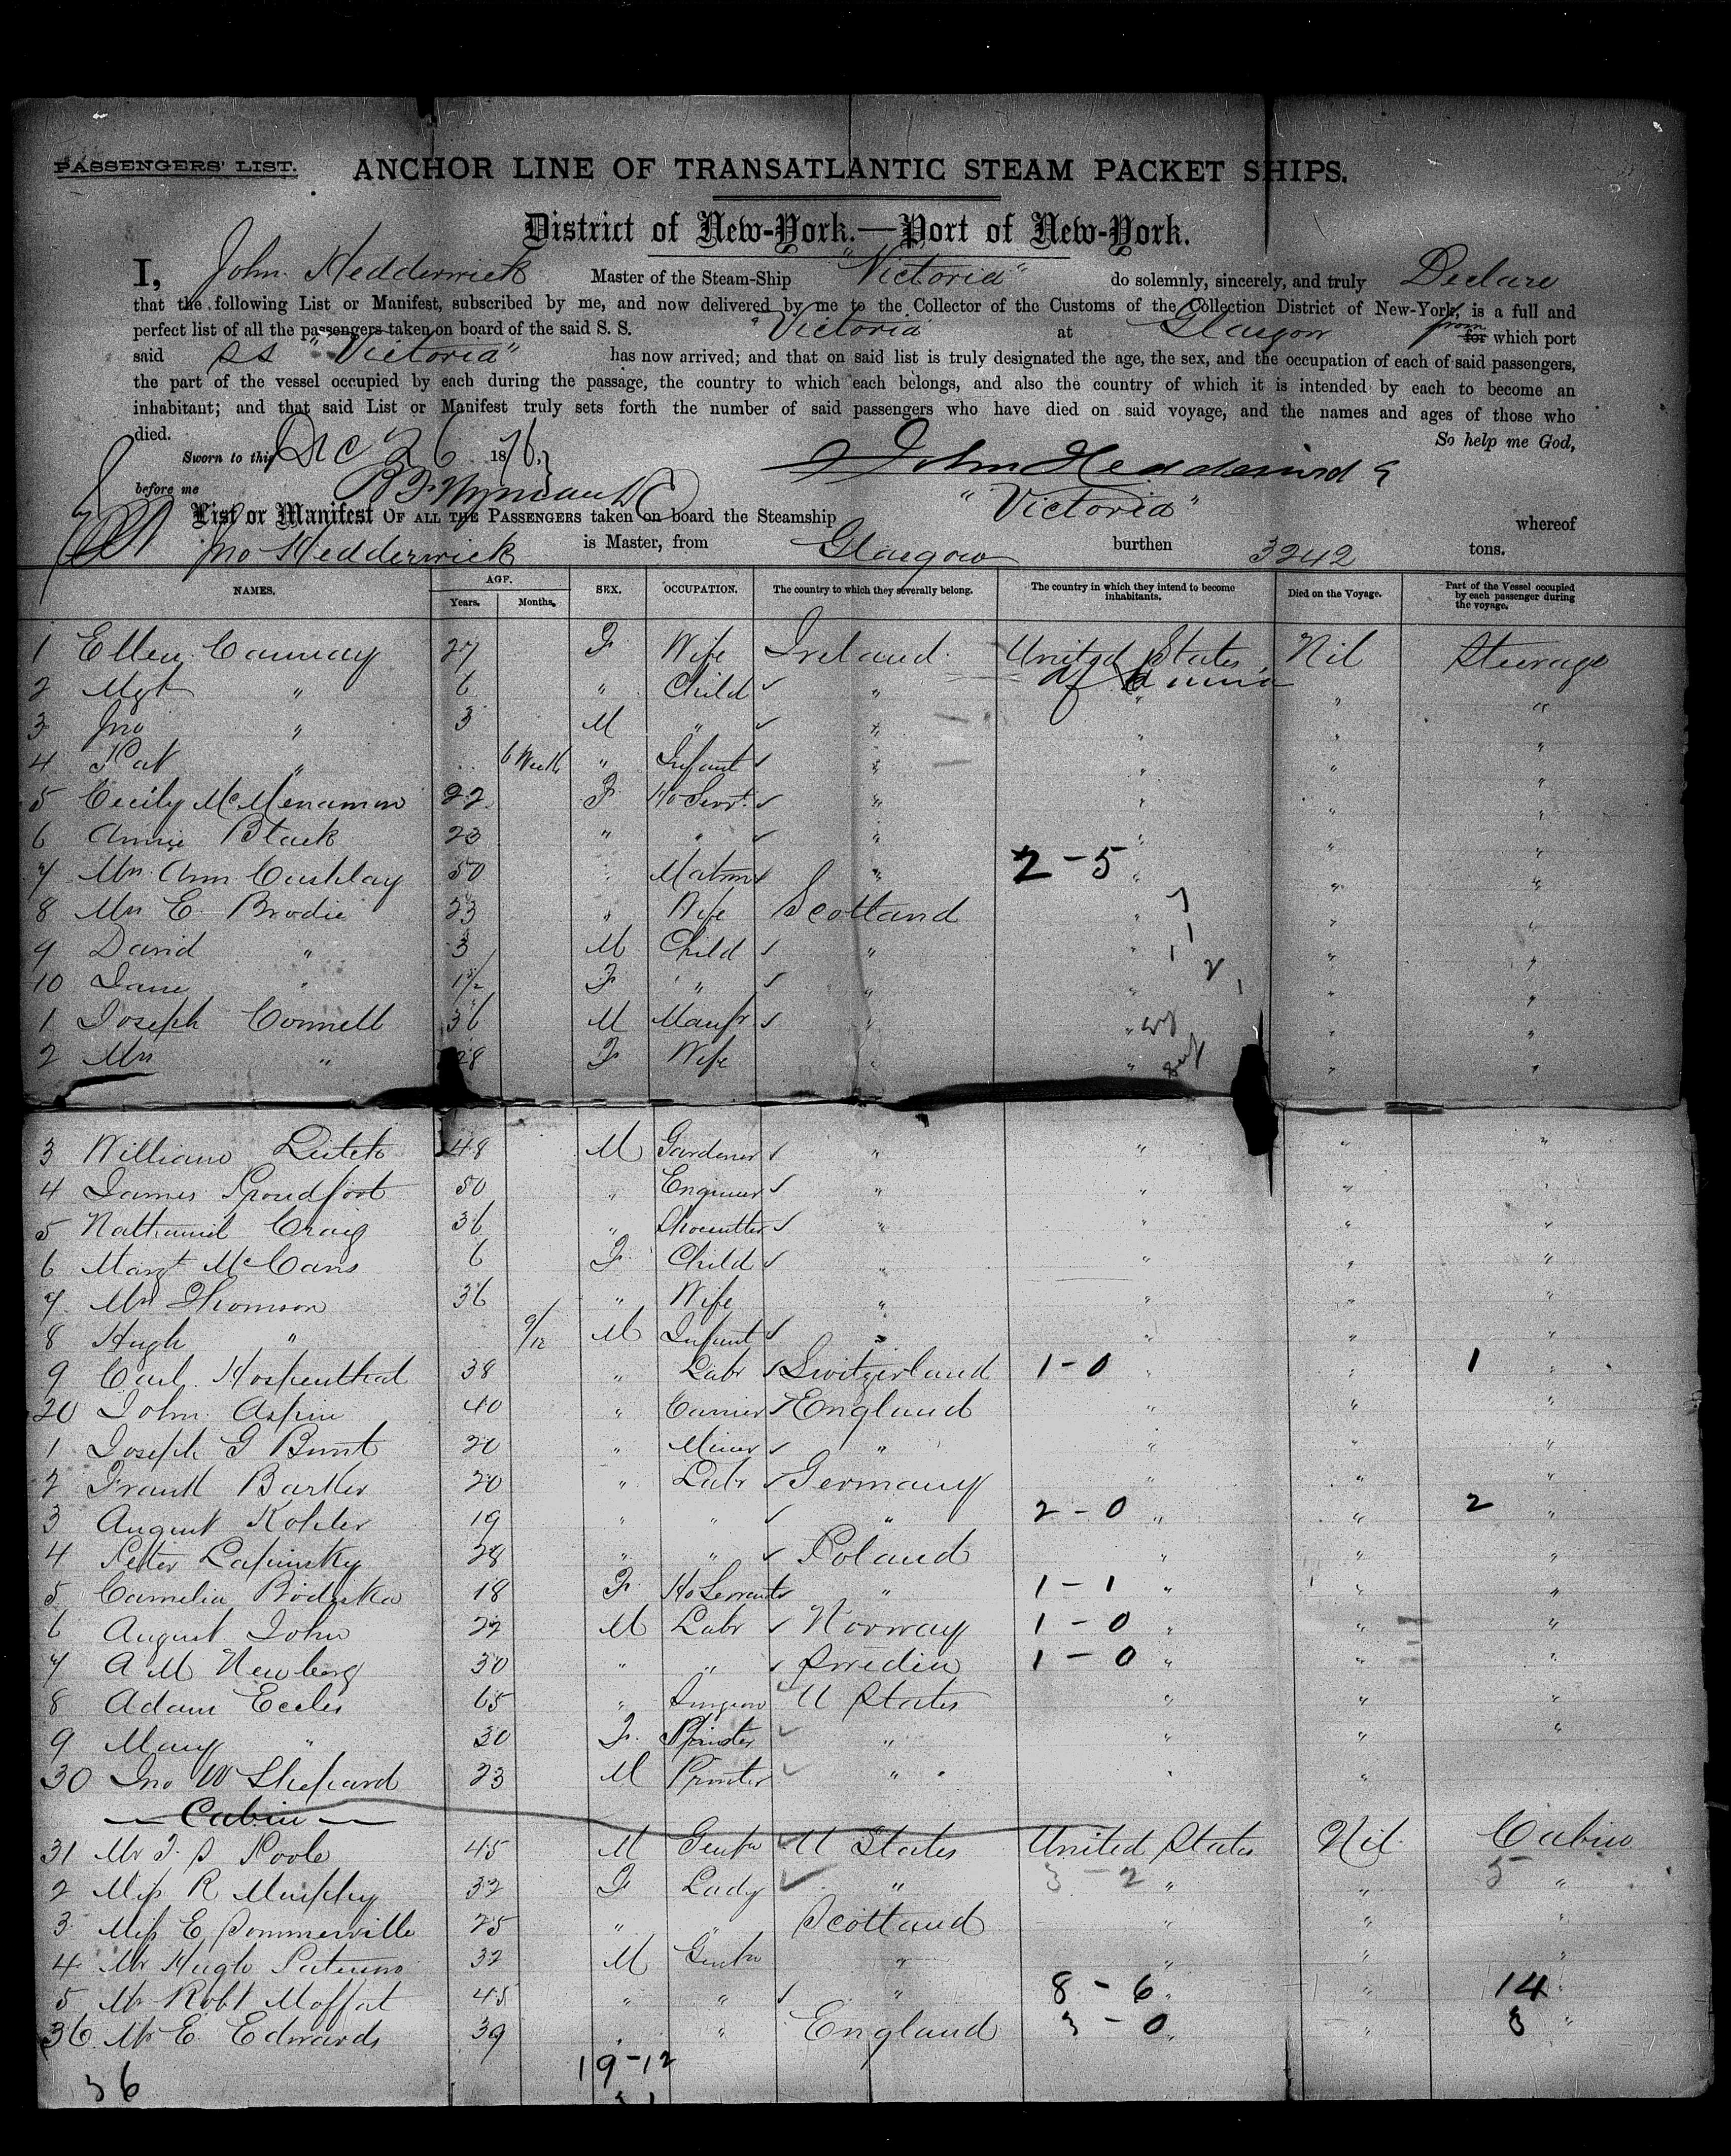 PASSENGERS' LIST. ANCHOR LINE OF TRANSATLANTIC STEAM PACKET SHIPS.
District of New-York.—Port of New-York.
I, John Hedderwick Master of the Steam-Ship "Victoria" do solemnly, sincerely, and truly Declare
that the following List or Manifest, subscribed by me, and now delivered by me to the Collector of the Customs of the Collection District of New-York, is a full and
perfect list of all the passengers taken on board of the said S. S. "Victoria" at Glasgow from for which port
said SS "Victoria" has now arrived; and that on said list is truly designated the age, the sex, and the occupation of each of said passengers,
the part of the vessel occupied by each during the passage, the country to which each belongs, and also the country of which it is intended by each to become an
inhabitant; and that said List or Manifest truly sets forth the number of said passengers who have died on said voyage, and the names and ages of those who
died. So help me God,
Sworn to this Dec 26 1876, John Hedderwick
before me
List or Manifest OF ALL THE PASSENGERS taken on board the Steamship "Victoria" whereof
Jno Hedderwick is Master, from Glasgow burthen 3242 tons.
NAMES. AGE. Years. Months. SEX. OCCUPATION. The country to which they severally belong. The country in which they intend to become inhabitants. Died on the Voyage. Part of the Vessel occupied by each passenger during the voyage.
1 Ellen 27 F Wife Ireland United States Nil Steerage
2 Mgt " 6 " Child " of America " "
3 Jno " 3 M " " " " "
4 Pat " 6 Weeks " Infant " " " "
5 Cecily McMenamin 22 F Ho Servt. " " " "
6 Annie Black 23 " " " " " "
7 Mrs Ann Cushlay 50 " Matron " 2-5 " " "
8 Mrs E Brodie 23 " Wife Scotland " " "
9 David " 3 M Child " " " "
10 Jane " 1½ F " " " " "
1 Joseph Connell 36 M Manfr " " " "
2 Mrs " 28 F Wife " " " "
3 William 48 M Gardener " " " "
4 James Proudfoot 50 " Engineer " " " "
5 Nathaniel Craig 36 " Shoecutter " " " "
6 Margt McCans 6 F Child " " " "
7 Mrs Thomson 36 " Wife " " " "
8 Hugh " 9/12 M Infant " " " "
9 Carl Hospenthal 38 " Labr Switzerland 1-0 " " 1 "
20 John Aspin 40 " Carrier England " " "
1 Joseph G Bunt 20 " Miner " " " "
2 Frank Barker 20 " Labr Germany " " "
3 August Kohler 19 " " " 2-0 " " 2 "
4 Peter Lapinsky 28 " " Poland " " "
5 Camelia 18 F Ho Servant " 1-1 " " "
6 August John 22 M Labr Norway 1-0 " " "
7 A M Newberg 30 " " Sweden 1-0 " " "
8 Adam Eccles 65 " Surgeon U States " " "
9 Mary " 30 F Spinster " " " "
30 Jno W Shepard 23 M Printer " " "
Cabin
31 Mr J. S Poole 45 M Gentn U States United States Nil Cabin
2 Miss R Murphy 32 F Lady " 3-2 " " 5 "
3 Miss E Sommerville 25 " " Scotland " " "
4 Mr Hugh 32 M Gentn " " " "
5 Mr Robt Moffat 45 " " " 8-6 " " 14 "
36 Mr E. Edwards 39 " " England 3-0 " " 3 "
36 19-12